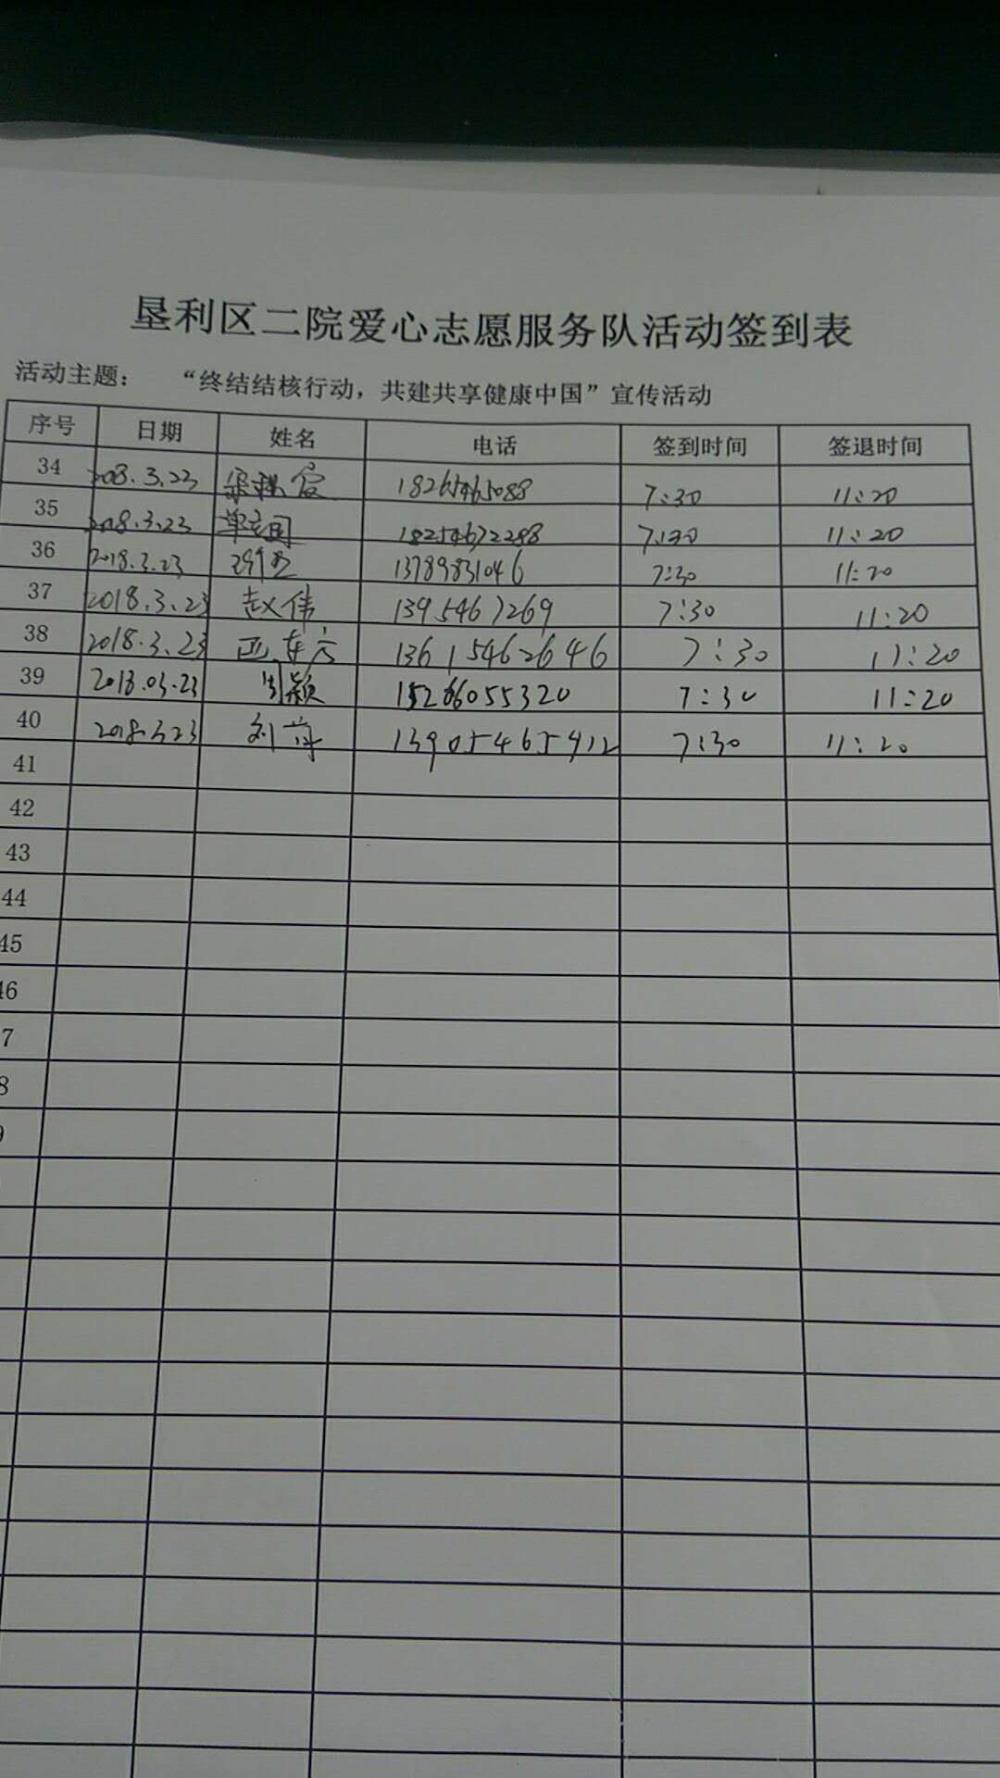 垦利区二院爱心志愿服务队活动签到表
活动主题： “终结结核行动，共建共享健康中国”宣传活动
序号 日期 姓名 电话 签到时间 签退时间
34 2018.3.23 18265465088 7:30 11:20
35 2018.3.23 单立国 18254672288 7:30 11:20
36 2018.3.23 13789831046 7:30 11:20
37 2018.3.23 赵伟 1395467269 7:30 11:20
38 2018.3.23 13615462646 7:30 11:20
39 2018.03.23 颖 15266055320 7:30 11:20
40 2018.3.23 刘萍 13905465912 7:30 11:20
41
42
43
44
45
46
7
8
9